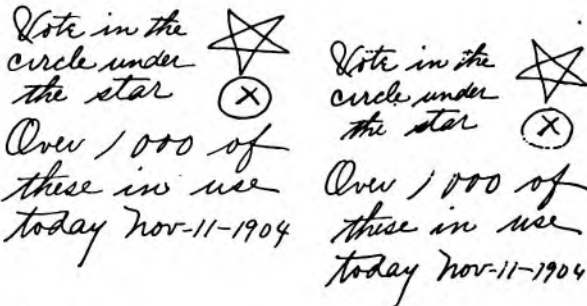 Vote in the
circle under
the star
X
Over 1000 of
these in use
today Nov-11-1904
Vote in the
circle under
the star
X
Over 1000 of
these in use
today Nov-11-1904